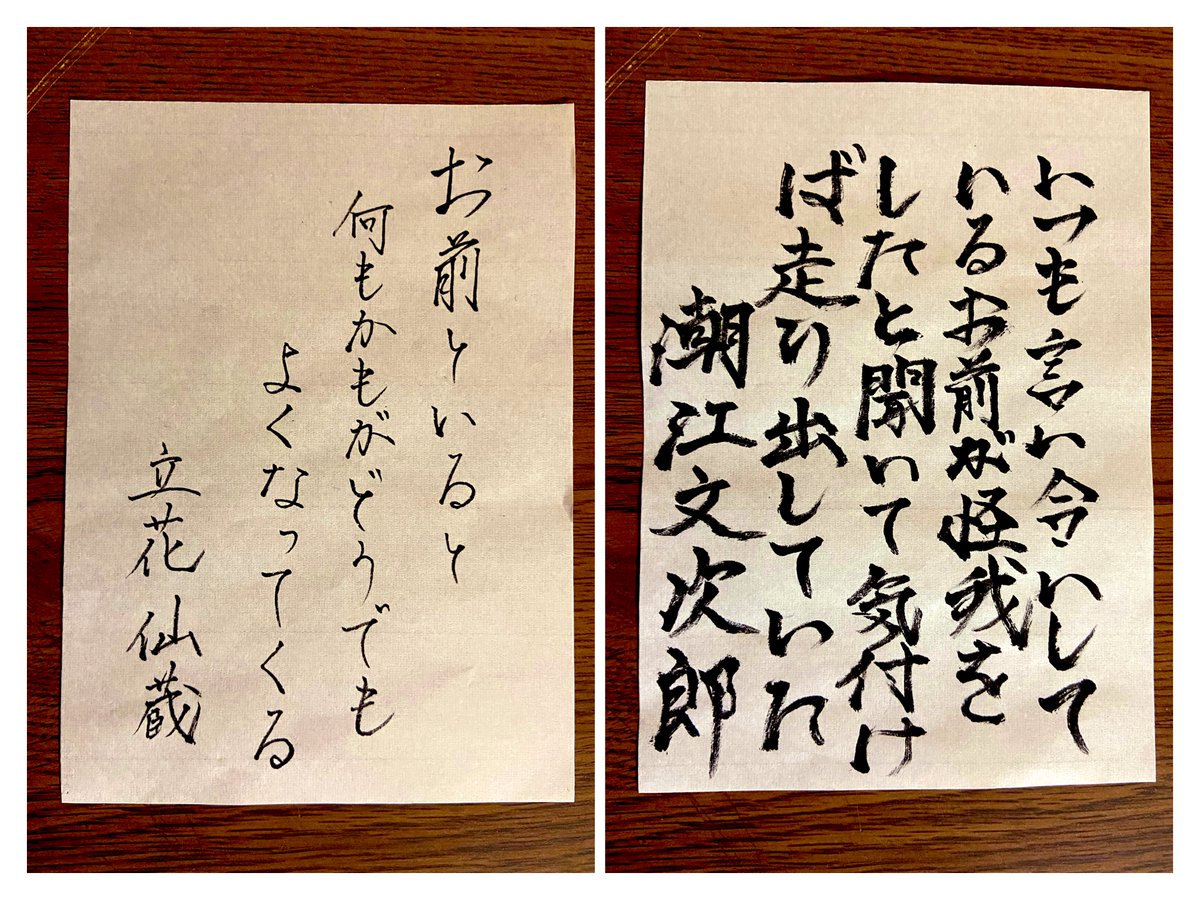 お前といると
何もかもがどうでも
よくなってくる
立花仙蔵
いつも言い合いして
いるお前が怪我を
したと聞いて気付け
ば走り出していた
潮江文次郎